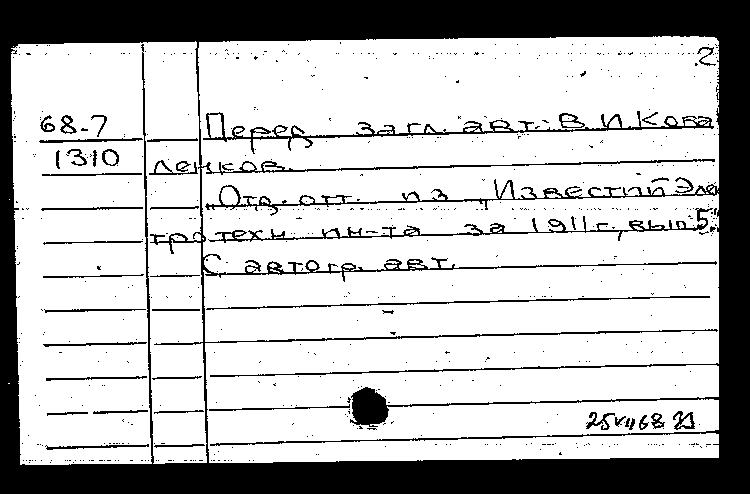 2
68-7 Перед загл. авт.: В. И. Кова
1310 ленков.
„Отд. отт. из „Известий Элек
тротехн. ин-та за 1911 г., вып. 5.
С автогр. авт.